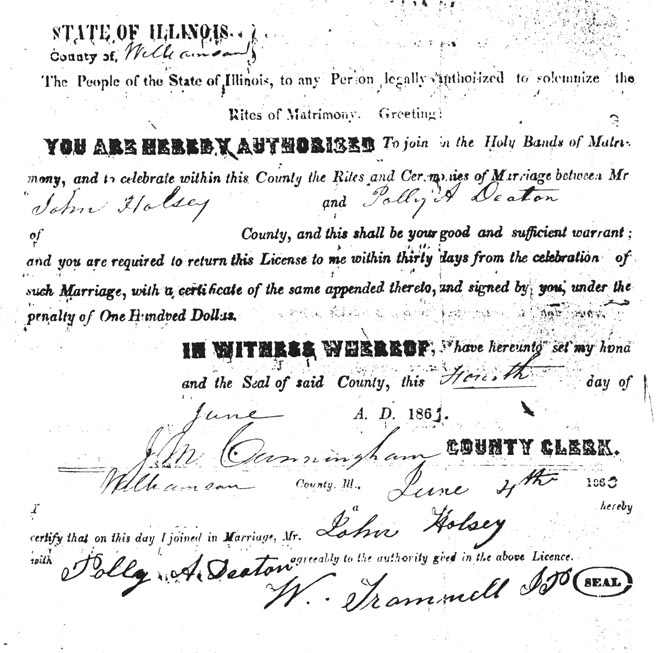 STATE OF ILLINOIS.
County of, Williamson
The People of the State of Illinois, to any Person legally authorized to solemnize the
Rites of Matrimony. Greeting:
YOU ARE HEREBY AUTHORISED To join in the Holy Bands of Matri-
mony, and to celebrate within this County the Rites and Ceremonies of Marriage between Mr
John Holsey and Polly A Deaton
of County, and this shall be your good and sufficient warrant;
and you are required to return this License to me within thirty days from the celebration of
such Marriage, with a certificate of the same appended thereto, and signed by you, under the
penalty of One Hundred Dollars.
IN WITNESS WHEREOF, I have hereunto set my hand
and the Seal of said County, this Fourth day of
June A. D. 186
J M Cunningham COUNTY CLERK.
Williamson County Ill., June 4th 1863
I hereby
certify that on this day I joined in Marriage, Mr. John Holsey
with Polly A. Deaton agreeably to the authority gived in the above Licence.
W. Trammell JP SEAL